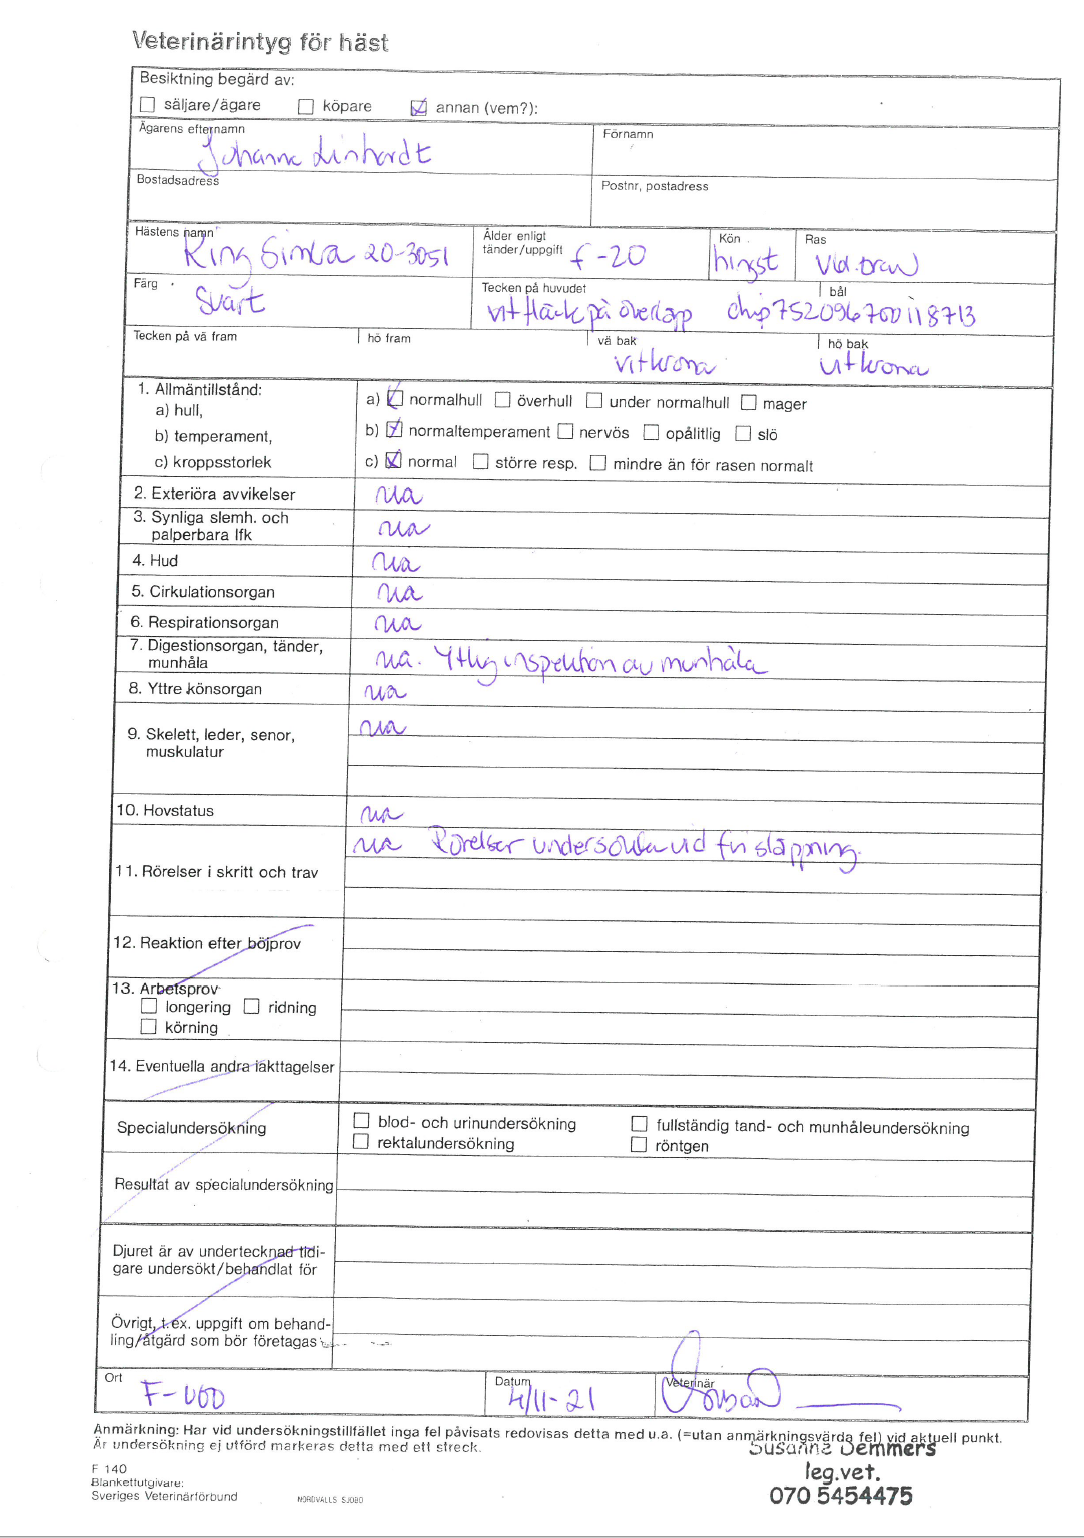 Veterinärintyg för häst
Besiktning begärd av:
säljare/ägare köpare annan (vem?):
Ägarens efternamn Förnamn
Johanna Linhardt
Bostadsadress Postnr, postadress
Hästens namn Ålder enligt tänder/uppgift Kön Ras
King Simba 20-3051 f-20 hingst Vbl.trav
Färg Tecken på huvudet bål
Svart vit fläck på överläpp chip 752096700118713
Tecken på vä fram hö fram vä bak hö bak
vit krona vit krona
1. Allmäntillstånd:
a) hull, a) normalhull överhull under normalhull mager
b) temperament, b) normaltemperament nervös opålitlig slö
c) kroppsstorlek c) normal större resp. mindre än för rasen normalt
2. Exteriöra avvikelser ua
3. Synliga slemh. och
palperbara lfk ua
4. Hud ua
5. Cirkulationsorgan ua
6. Respirationsorgan ua
7. Digestionsorgan, tänder,
munhåla ua. Ytlig inspektion av munhåla
8. Yttre könsorgan ua
9. Skelett, leder, senor, ua
muskulatur
10. Hovstatus ua
ua Rörelser undersökta vid fri släppning.
11. Rörelser i skritt och trav
12. Reaktion efter böjprov
13. Arbetsprov
longering ridning
körning
14. Eventuella andra iakttagelser
Specialundersökning blod- och urinundersökning fullständig tand- och munhåleundersökning
rektalundersökning röntgen
Resultat av specialundersökning
Djuret är av undertecknad tidi-
gare undersökt/behandlat för
Övrigt, t.ex. uppgift om behand-
ling/åtgärd som bör företagas
Ort Datum Veterinär
F-vöd 4/11-21
Anmärkning: Har vid undersökningstillfället inga fel påvisats redovisas detta med u.a. (=utan anmärkningsvärda fel) vid aktuell punkt.
Är undersökning ej utförd markeras detta med ett streck.
Susanne Demmers
leg.vet.
070 5454475
F 140
Blankettutgivare:
Sveriges Veterinärförbund NORDVALLS SJÖBO